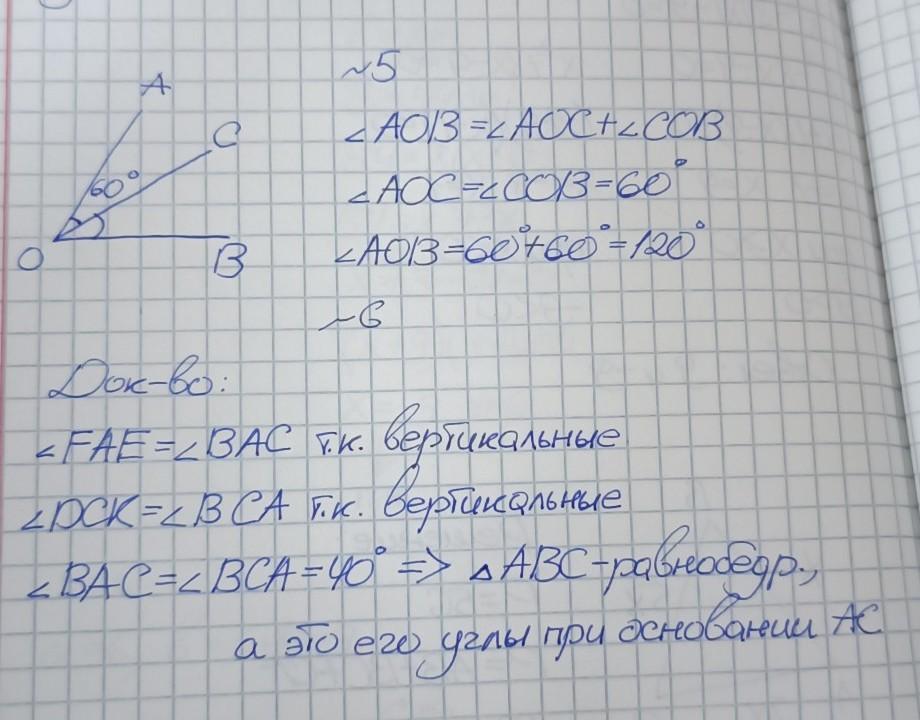 A
C
60°
O
B
~5
∠AOB=∠AOC+∠COB
∠AOC=∠COB=60°
∠AOB=60°+60°=120°
~6
Док-во:
∠FAE=∠BAC т.к. вертикальные
∠DCK=∠BCA т.к. вертикальные
∠BAC=∠BCA=40° => △ABC-равнобедр.,
а это его углы при основании AC